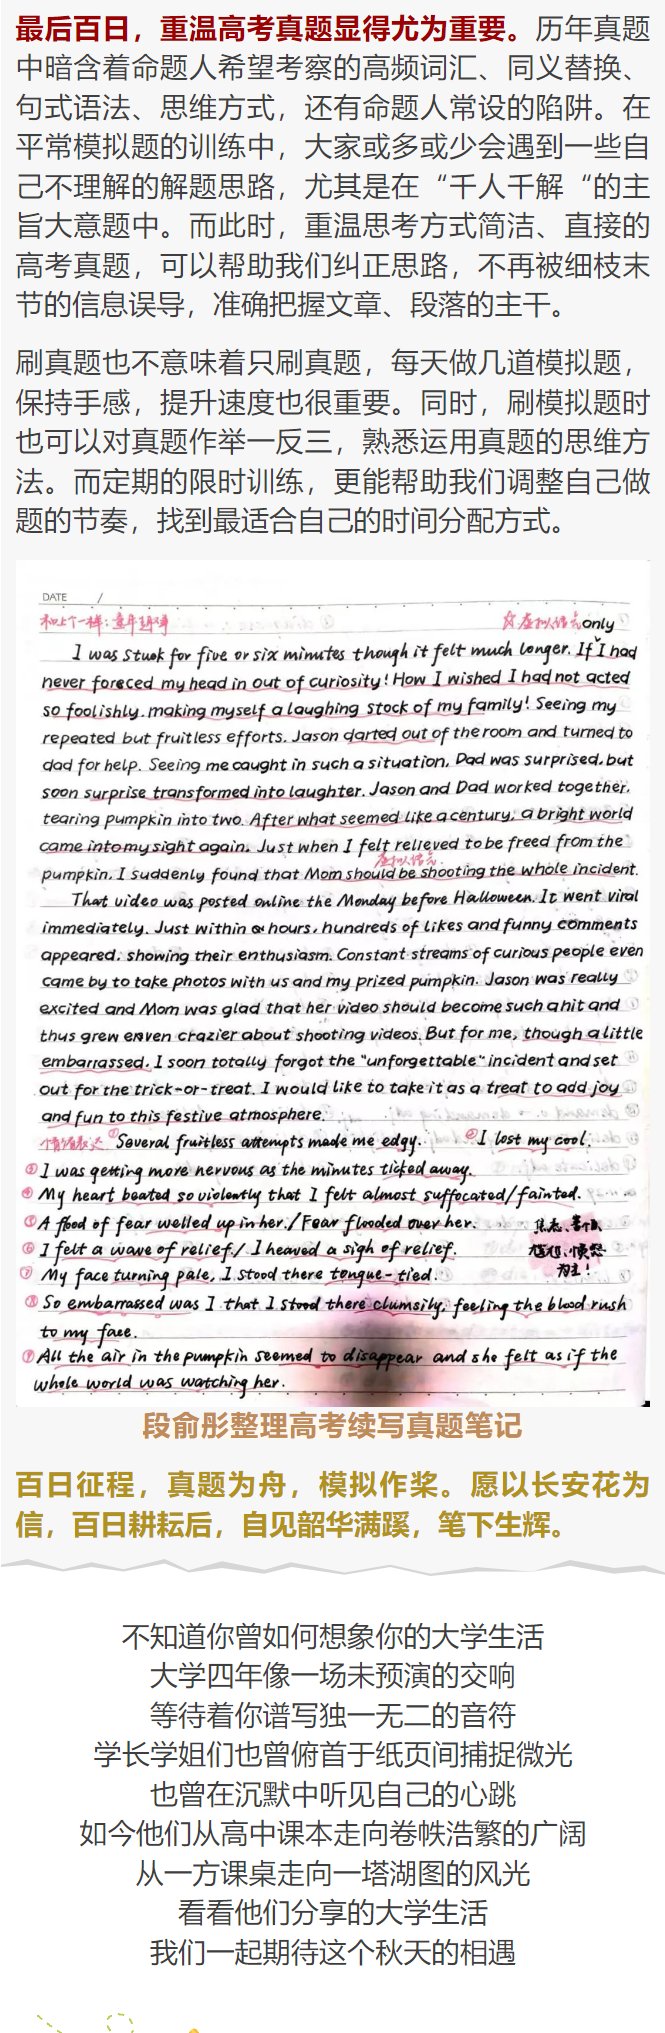 最后百日，重温高考真题显得尤为重要。历年真题
中暗含着命题人希望考察的高频词汇、同义替换、
句式语法、思维方式，还有命题人常设的陷阱。在
平常模拟题的训练中，大家或多或少会遇到一些自
己不理解的解题思路，尤其是在“千人千解“的主
旨大意题中。而此时，重温思考方式简洁、直接的
高考真题，可以帮助我们纠正思路，不再被细枝末
节的信息误导，准确把握文章、段落的主干。
刷真题也不意味着只刷真题，每天做几道模拟题，
保持手感，提升速度也很重要。同时，刷模拟题时
也可以对真题作举一反三，熟悉运用真题的思维方
法。而定期的限时训练，更能帮助我们调整自己做
题的节奏，找到最适合自己的时间分配方式。
DATE /
和上个一样：
虚拟语气 only
I was stuck for five or six minutes though it felt much longer. If I had
never foreced my head in out of curiosity! How I wished I had not acted
so foolishly, making myself a laughing stock of my family! Seeing my
repeated but fruitless efforts, Jason darted out of the room and turned to
dad for help. Seeing me caught in such a situation, Dad was surprised, but
soon surprise transformed into laughter. Jason and Dad worked together,
tearing pumpkin into two. After what seemed like a century, a bright world
came into my sight again. Just when I felt relieved to be freed from the
虚拟语气
pumpkin, I suddenly found that Mom should be shooting the whole incident.
That video was posted online the Monday before Halloween. It went viral
immediately. Just within hours, hundreds of likes and funny comments
appeared, showing their enthusiasm. Constant streams of curious people even
came by to take photos with us and my prized pumpkin. Jason was really
excited and Mom was glad that her video should become such a hit and
thus grew even crazier about shooting videos. But for me, though a little
embarrassed, I soon totally forgot the "unforgettable" incident and set
out for the trick-or-treat. I would like to take it as a treat to add joy
and fun to this festive atmosphere.
情绪表达 ①Several fruitless attempts made me edgy. ②I lost my cool.
③I was getting more nervous as the minutes ticked away.
④My heart beated so violently that I felt almost suffocated/fainted.
⑤A flood of fear welled up in her./Fear flooded over her.
⑥I felt a wave of relief./ I heaved a sigh of relief.
焦虑、害怕、
尴尬、愤怒
为主！
⑦My face turning pale, I stood there tongue-tied.
⑧So embarrassed was I that I stood there clumsily, feeling the blood rush
to my face.
⑨All the air in the pumpkin seemed to disappear and she felt as if the
whole world was watching her.
段俞彤整理高考续写真题笔记
百日征程，真题为舟，模拟作桨。愿以长安花为
信，百日耕耘后，自见韶华满蹊，笔下生辉。
不知道你曾如何想象你的大学生活
大学四年像一场未预演的交响
等待着你谱写独一无二的音符
学长学姐们也曾俯首于纸页间捕捉微光
也曾在沉默中听见自己的心跳
如今他们从高中课本走向卷帙浩繁的广阔
从一方课桌走向一塔湖图的风光
看看他们分享的大学生活
我们一起期待这个秋天的相遇